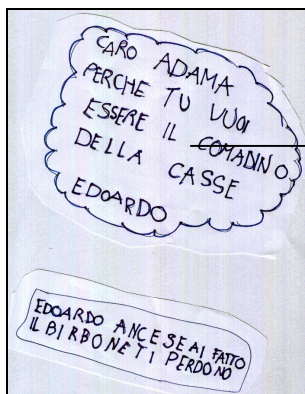 CARO ADAMA
PERCHE TU VUOI
ESSERE IL COMADINO
DELLA CASSE
EDOARDO
EDOARDO ANCESEAI FATTO
IL BIRBONE TI PERDONO